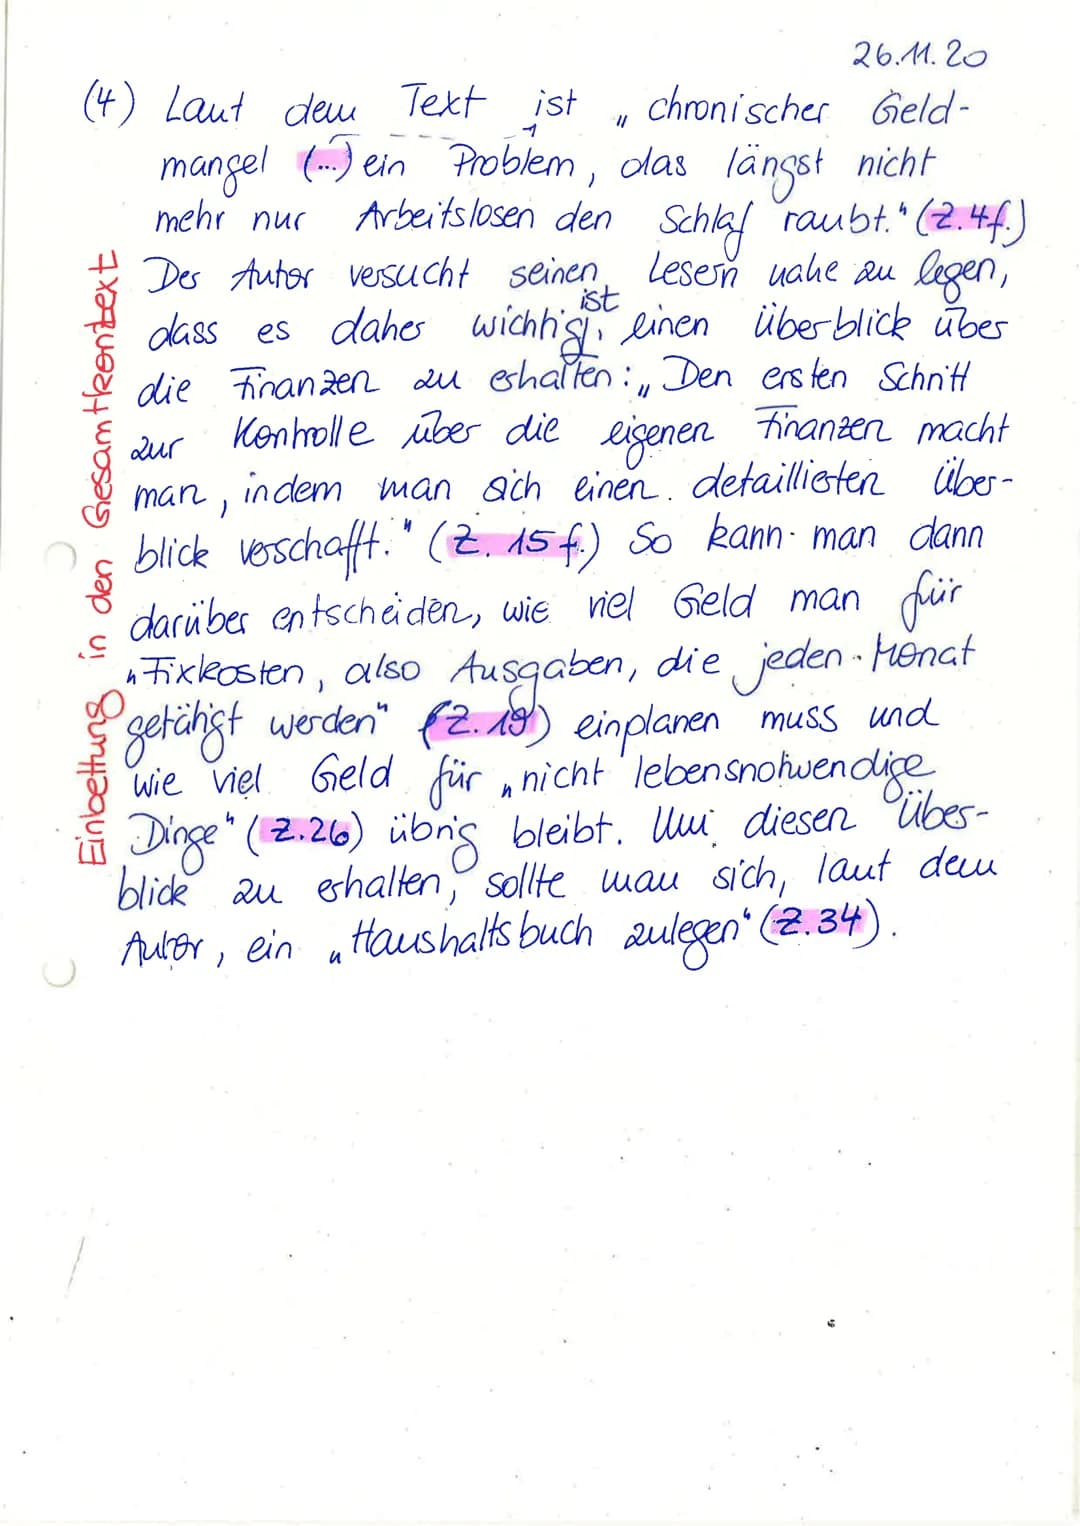 26.11.20
(4) Laut dem Text ist „chronischer Geld-
mangel (...) ein Problem, das längst nicht
mehr nur Arbeitslosen den Schlaf raubt." (Z. 4f.)
Der Autor versucht seinen Lesern nahe zu legen,
dass es daher wichtig ist, einen Überblick über
die Finanzen zu erhalten: „Den ersten Schritt
zur Kontrolle über die eigenen Finanzen macht
man, indem man sich einen detaillierten Über-
blick verschafft." (Z. 15 f.) So kann man dann
darüber entscheiden, wie viel Geld man für
„Fixkosten, also Ausgaben, die jeden Monat
getätigt werden" (Z. 19) einplanen muss und
wie viel Geld für „nicht lebensnotwendige
Dinge" (Z. 26) übrig bleibt. Um diesen Über-
blick zu erhalten, sollte man sich, laut dem
Autor, ein „Haushaltsbuch zulegen" (Z. 34).
Einbettung in den Gesamtkontext